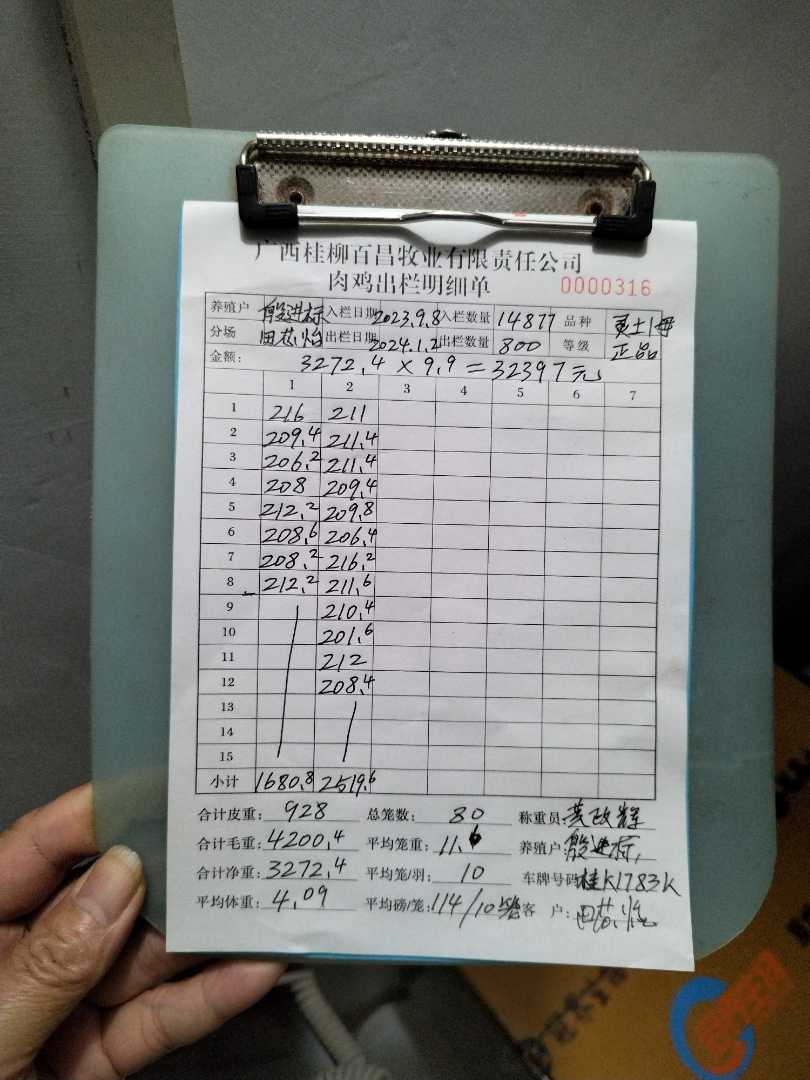 广西桂柳百昌牧业有限责任公司
肉鸡出栏明细单 0000316
养殖户 殷进标 入栏日期 2023.9.8 入栏数量 14877 品种 更土1母
分场 田芯怡 出栏日期 2024.1.2 出栏数量 800 等级 正品
金额: 3272.4 × 9.9 = 32397元
1 2 3 4 5 6 7
1 216 211
2 209.4 211.4
3 206.2 211.4
4 208 209.4
5 212.2 209.8
6 208.6 206.4
7 208.2 216.2
8 212.2 211.6
9 210.4
10 201.6
11 212
12 208.4
13
14
15
小计 1680.8 2519.6
合计皮重: 928 总笼数: 80 称重员: 黄政辉
合计毛重: 4200.4 平均笼重: 11.6 养殖户: 殷进标
合计净重: 3272.4 平均笼/羽: 10 车牌号码: 桂K1783K
平均体重: 4.09 平均磅/笼: 114/10 客 户: 田芯怡